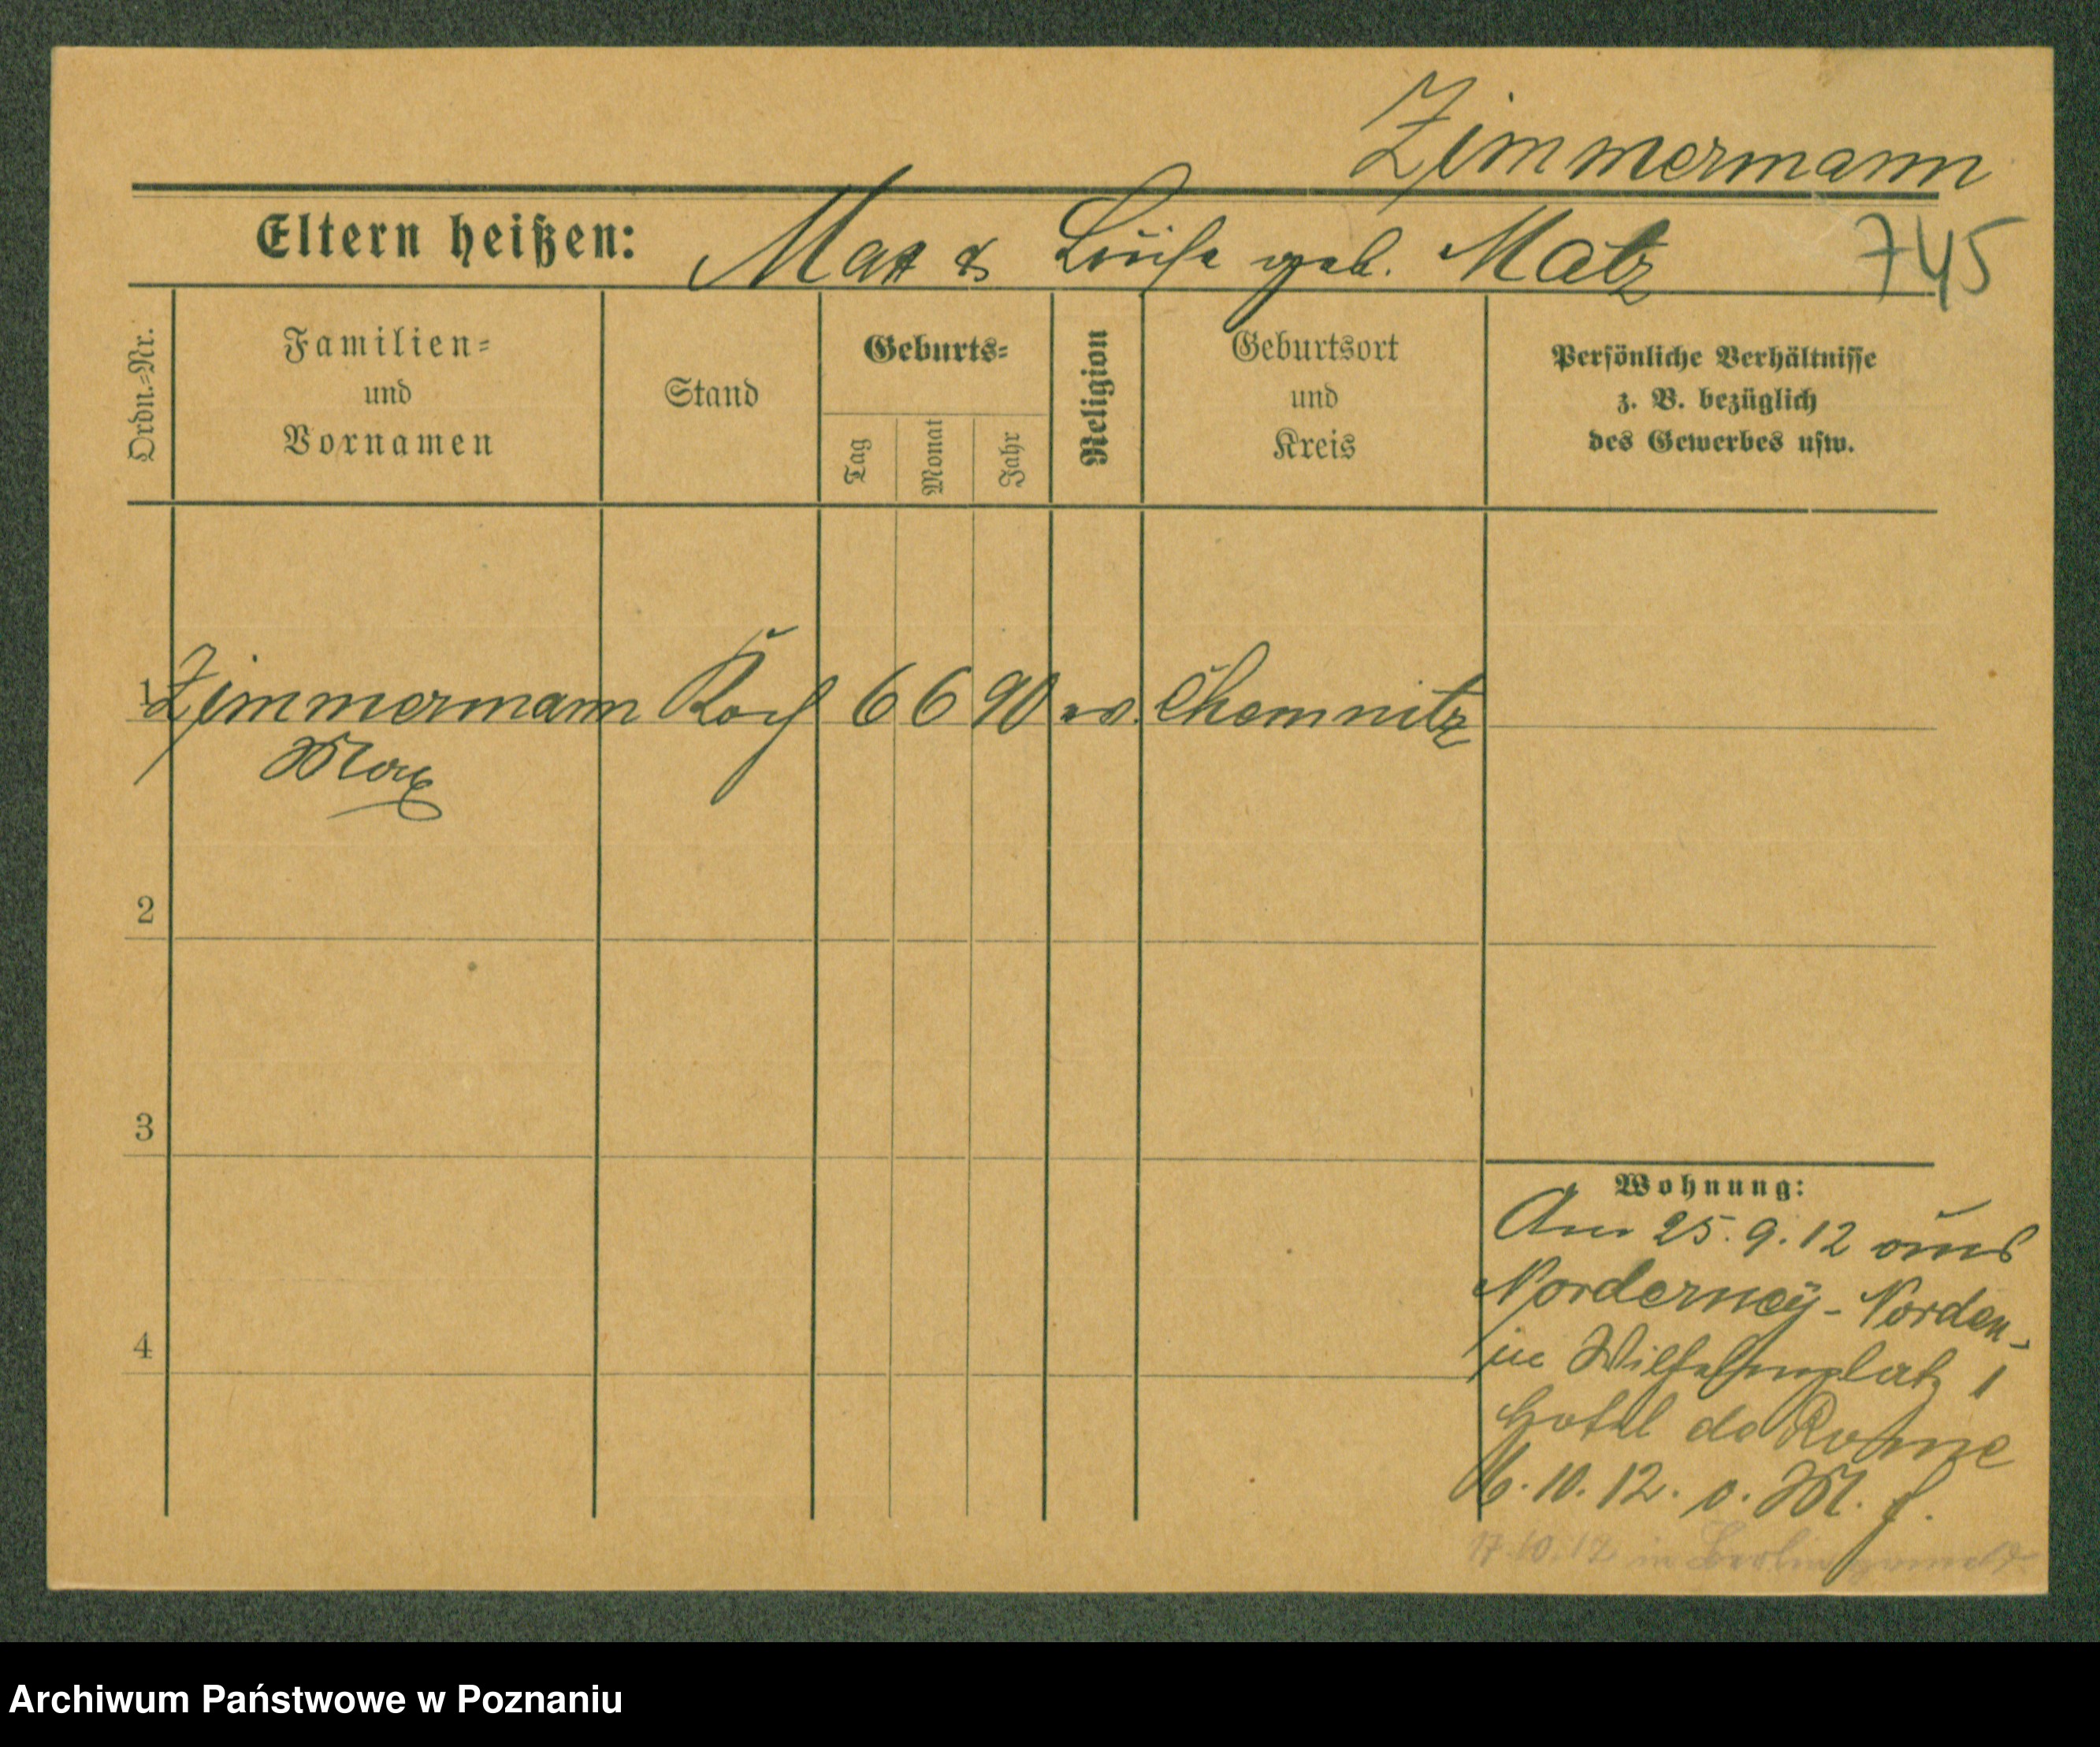 Zimmermann
Eltern heißen: Max & Luise geb. Matz 745
Ordn.-Nr.
Familien-
und
Vornamen
Stand
Geburts-
Tag
Monat
Jahr
Religion
Geburtsort
und
Kreis
Persönliche Verhältnisse
z. B. bezüglich
des Gewerbes usw.
1 Zimmermann Koch 6 6 90 ev. Chemnitz
Max
2
3
4
Wohnung:
Am 25.9.12 aus
Norderney-Norden-
in Wilhelmplatz 1
Hotel de Rome
6.10.12. o. M. f.
17.10.12 in Berlin gemeld.
Archiwum Państwowe w Poznaniu